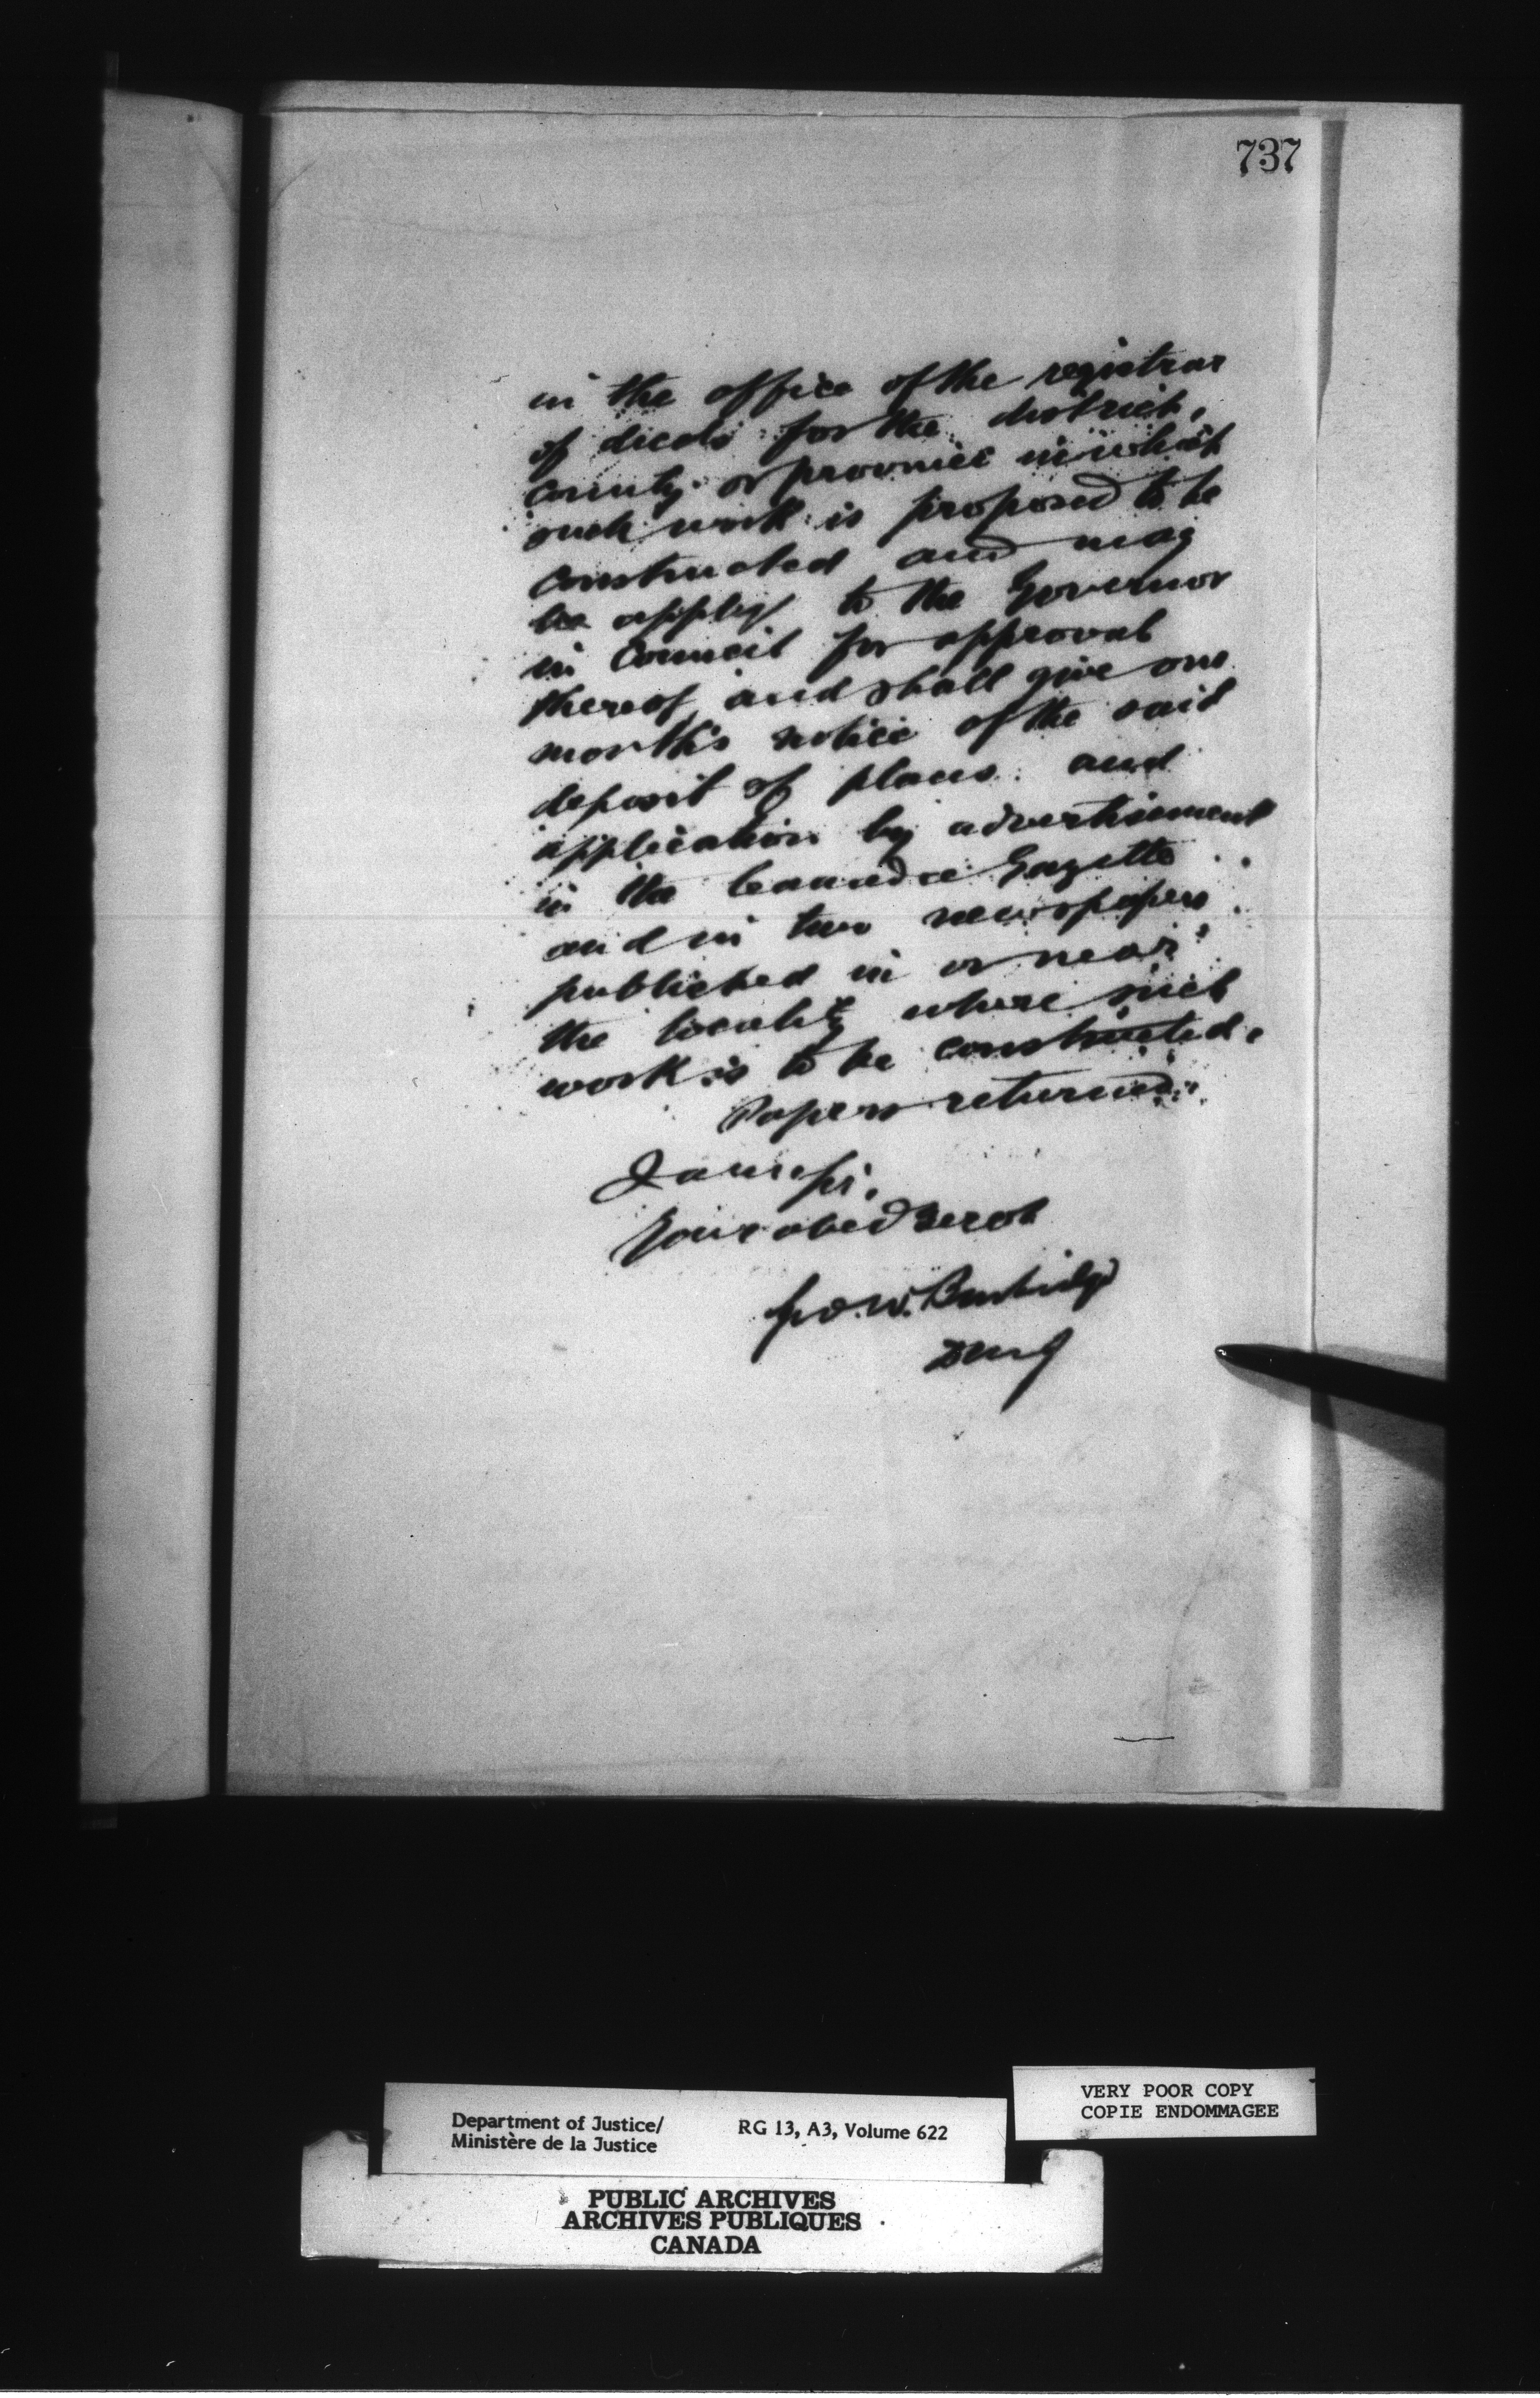 737
in the office of the registrar
of deeds for the district,
county or province in which
such work is proposed to be
constructed and may
be apply to the Governor
in Council for approval
thereof, and shall give one
month's notice of the said
deposit of plans and
application by advertisement
in the Canada Gazette
and in two newspapers
published in or near
the locality where such
work is to be constructed.
Papers returned.
I am sir,
Your obed Servt
Geo. W. Burbidge
DMJ
VERY POOR COPY
COPIE ENDOMMAGEE
Department of Justice/
Ministère de la Justice
RG 13, A3, Volume 622
PUBLIC ARCHIVES
ARCHIVES PUBLIQUES
CANADA